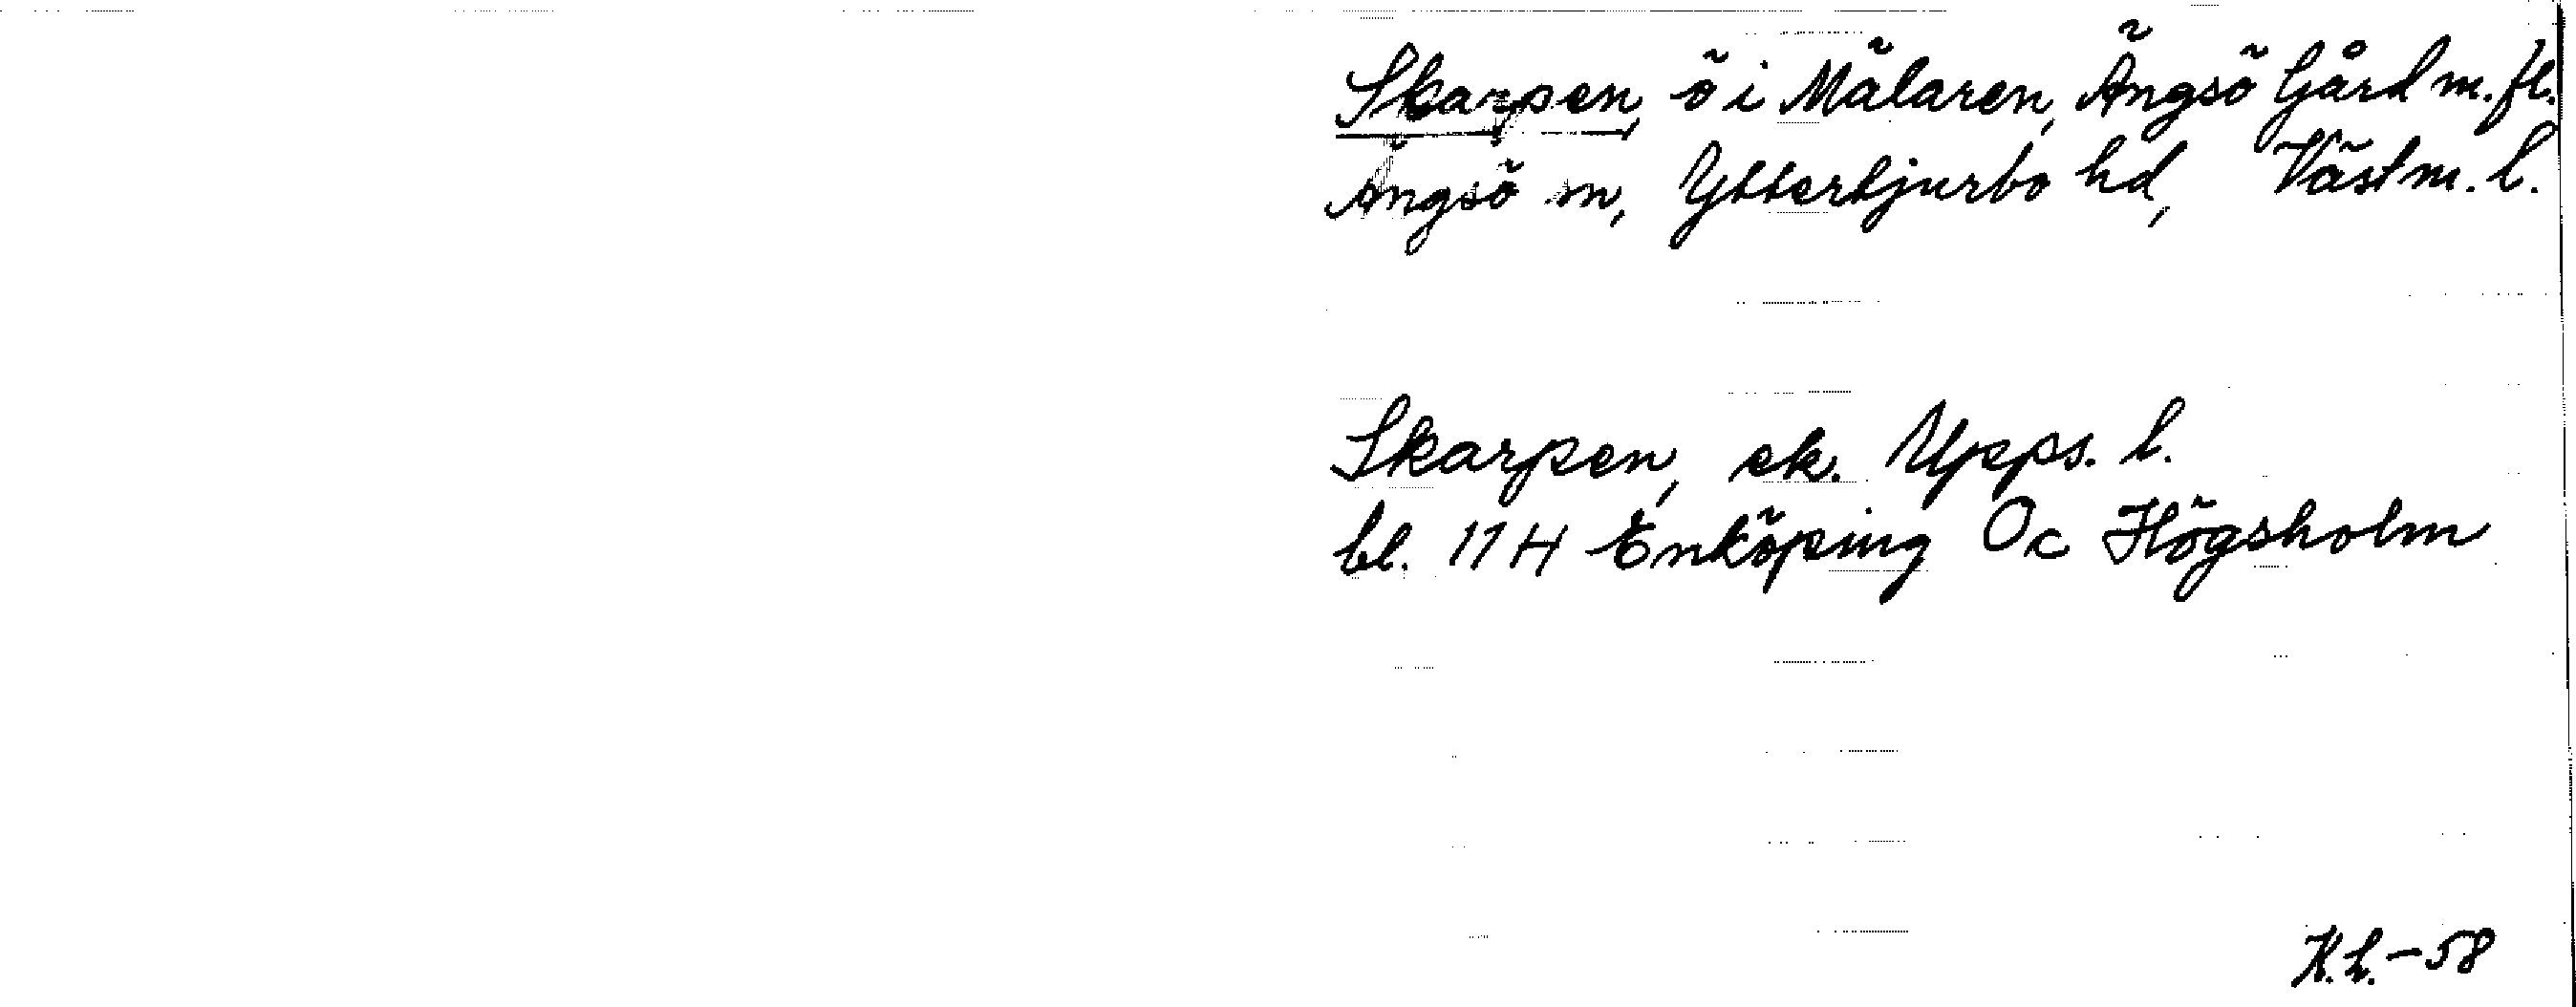 Skarpen, ö i Mälaren, Ängsö Gård m.fl.
Ängsö sn, Yttertjurbo hd, Västm. l.
Skarpen, ek. Upps. l.
bl. 11 H Enköping Oc Högsholm
K.h. - 58